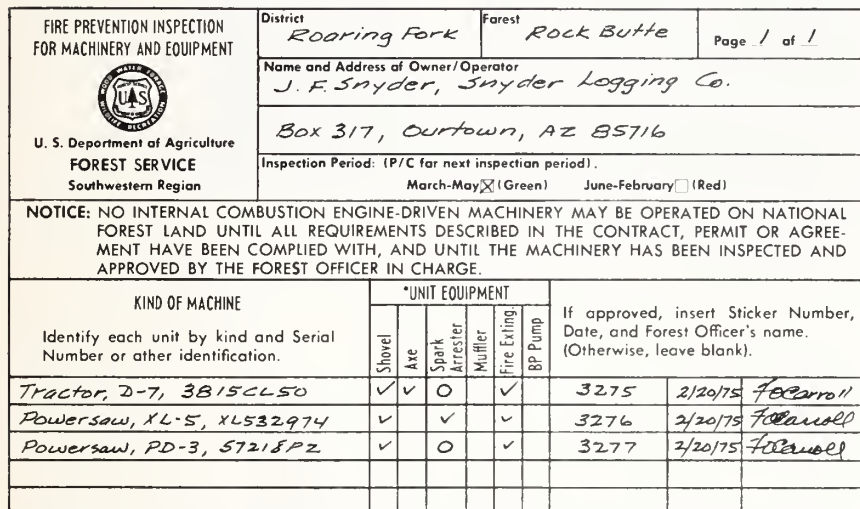 FIRE PREVENTION INSPECTION
FOR MACHINERY AND EQUIPMENT
WOOD WATER FORAGE
UAS
WILDLIFE RECREATION
U. S. Department of Agriculture
FOREST SERVICE
Southwestern Region
District
Roaring Fork
Forest
Rock Butte
Page 1 of 1
Name and Address of Owner/Operator
J. F. Snyder, Snyder Logging Co.
Box 317, Ourtown, AZ 85716
Inspection Period: (P/C for next inspection period).
March-May ☒ (Green) June-February ☐ (Red)
NOTICE: NO INTERNAL COMBUSTION ENGINE-DRIVEN MACHINERY MAY BE OPERATED ON NATIONAL
FOREST LAND UNTIL ALL REQUIREMENTS DESCRIBED IN THE CONTRACT, PERMIT OR AGREE-
MENT HAVE BEEN COMPLIED WITH, AND UNTIL THE MACHINERY HAS BEEN INSPECTED AND
APPROVED BY THE FOREST OFFICER IN CHARGE.
KIND OF MACHINE
Identify each unit by kind and Serial
Number or other identification.
*UNIT EQUIPMENT
Shovel
Axe
Spark
Arrester
Muffler
Fire Exting.
BP Pump
If approved, insert Sticker Number,
Date, and Forest Officer's name.
(Otherwise, leave blank).
Tractor, D-7, 3815CL50 ✓ ✓ O ✓ 3275 2/20/75 FO Carroll
Powersaw, XL-5, XL532974 ✓ ✓ ✓ 3276 2/20/75 FO Carroll
Powersaw, PD-3, 57218PZ ✓ O ✓ 3277 2/20/75 FO Carroll